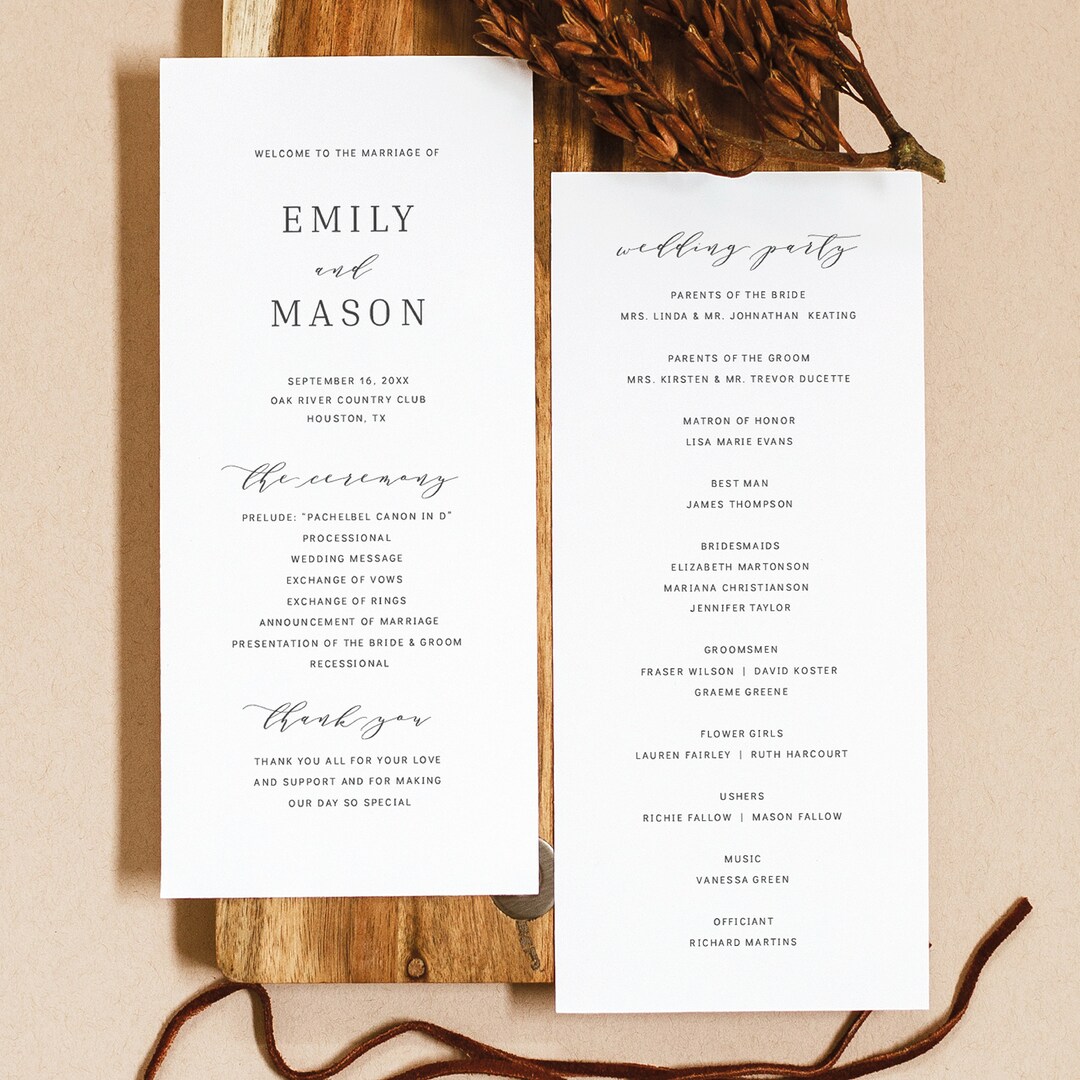 WELCOME TO THE MARRIAGE OF
EMILY
and
MASON
SEPTEMBER 16, 20XX
OAK RIVER COUNTRY CLUB
HOUSTON, TX
the ceremony
PRELUDE: "PACHELBEL CANON IN D"
PROCESSIONAL
WEDDING MESSAGE
EXCHANGE OF VOWS
EXCHANGE OF RINGS
ANNOUNCEMENT OF MARRIAGE
PRESENTATION OF THE BRIDE & GROOM
RECESSIONAL
thank you
THANK YOU ALL FOR YOUR LOVE
AND SUPPORT AND FOR MAKING
OUR DAY SO SPECIAL
wedding party
PARENTS OF THE BRIDE
MRS. LINDA & MR. JOHNATHAN KEATING
PARENTS OF THE GROOM
MRS. KIRSTEN & MR. TREVOR DUCETTE
MATRON OF HONOR
LISA MARIE EVANS
BEST MAN
JAMES THOMPSON
BRIDESMAIDS
ELIZABETH MARTONSON
MARIANA CHRISTIANSON
JENNIFER TAYLOR
GROOMSMEN
FRASER WILSON | DAVID KOSTER
GRAEME GREENE
FLOWER GIRLS
LAUREN FAIRLEY | RUTH HARCOURT
USHERS
RICHIE FALLOW | MASON FALLOW
MUSIC
VANESSA GREEN
OFFICIANT
RICHARD MARTINS